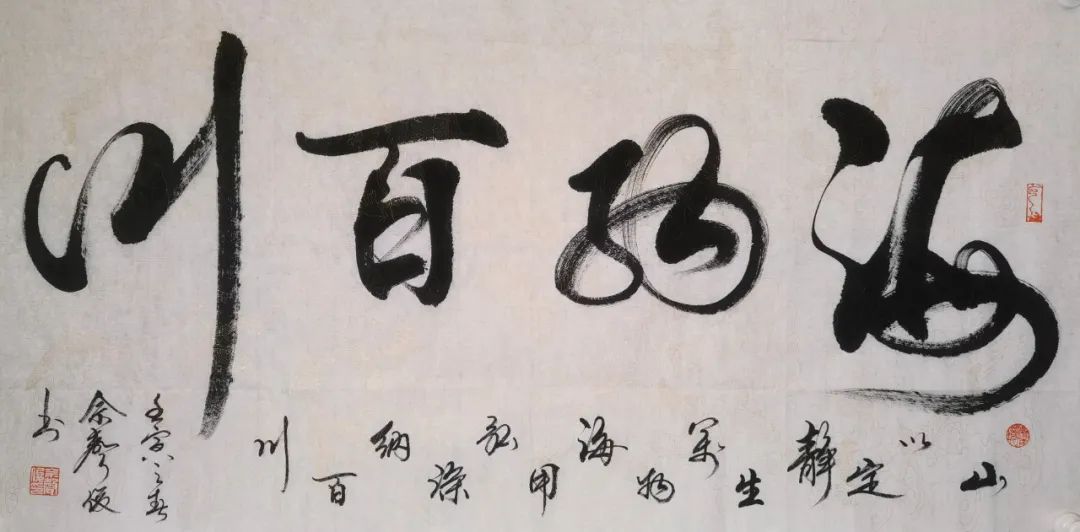 海納百川
山以定靜生萬物海用弘深納百川
壬寅之春
書